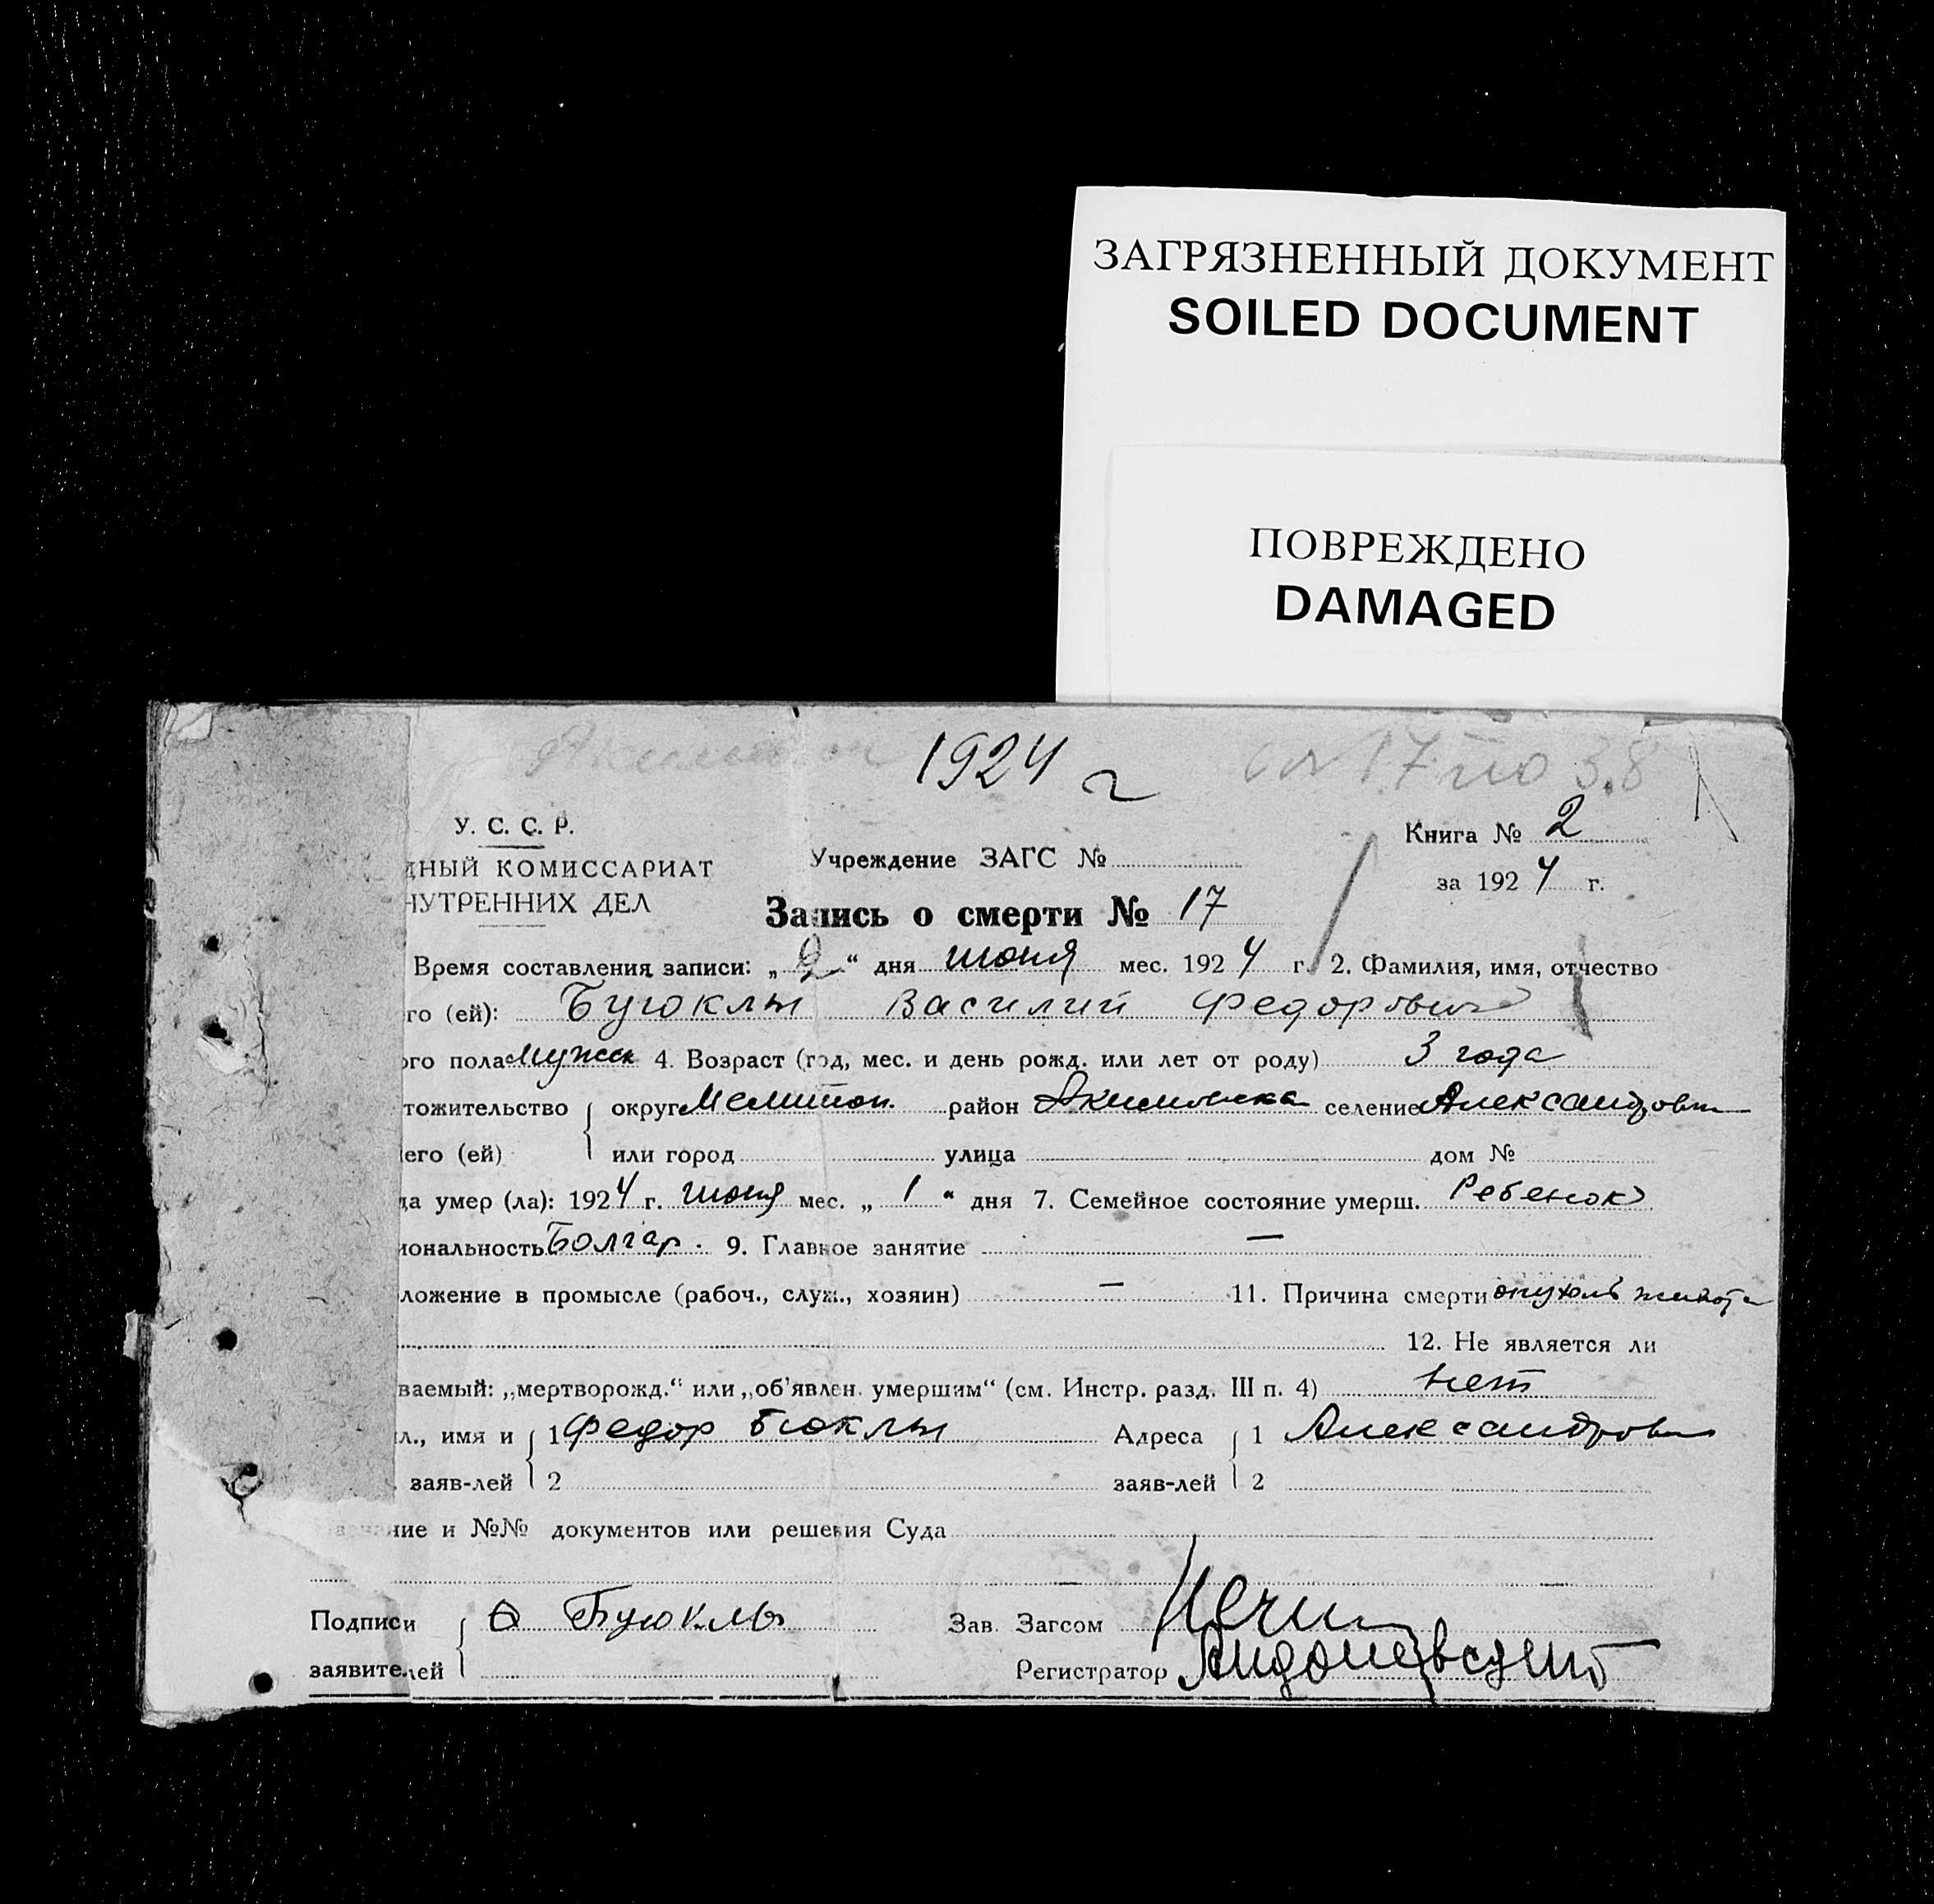 ЗАГРЯЗНЕННЫЙ ДОКУМЕНТ
SOILED DOCUMENT
ПОВРЕЖДЕНО
DAMAGED
1924 г
17 по 38
У. С. С. Р.
Книга № 2
ДНЫЙ КОМИССАРИАТ
Учреждение ЗАГС №
за 1924 г.
НУТРЕННИХ ДЕЛ
Запись о смерти № 17
Время составления записи: „2“ дня июня мес. 1924 г. 2. Фамилия, имя, отчество
го (ей): Буюклы Василий Федорович
ого пола Мужск 4. Возраст (год, мес. и день рожд. или лет от роду) 3 года
тожительство округ Мелитоп. район Акимовка селение Александровк
его (ей) или город улица дом №
да умер (ла): 1924 г. июня мес. „1“ дня 7. Семейное состояние умерш. Ребенок
иональность Болгар. 9. Главное занятие —
ложение в промысле (рабоч., служ., хозяин) — 11. Причина смерти опухоль живота
12. Не является ли
ваемый: „мертворожд.“ или „об'явлен. умершим“ (см. Инстр. разд. III п. 4) нет
л., имя и 1 Федор Бюклы Адреса 1 Александровк
заяв-лей 2 заяв-лей 2
ние и №№ документов или решения Суда
Подписи Буюклы Зав. Загсом
заявителей Регистратор